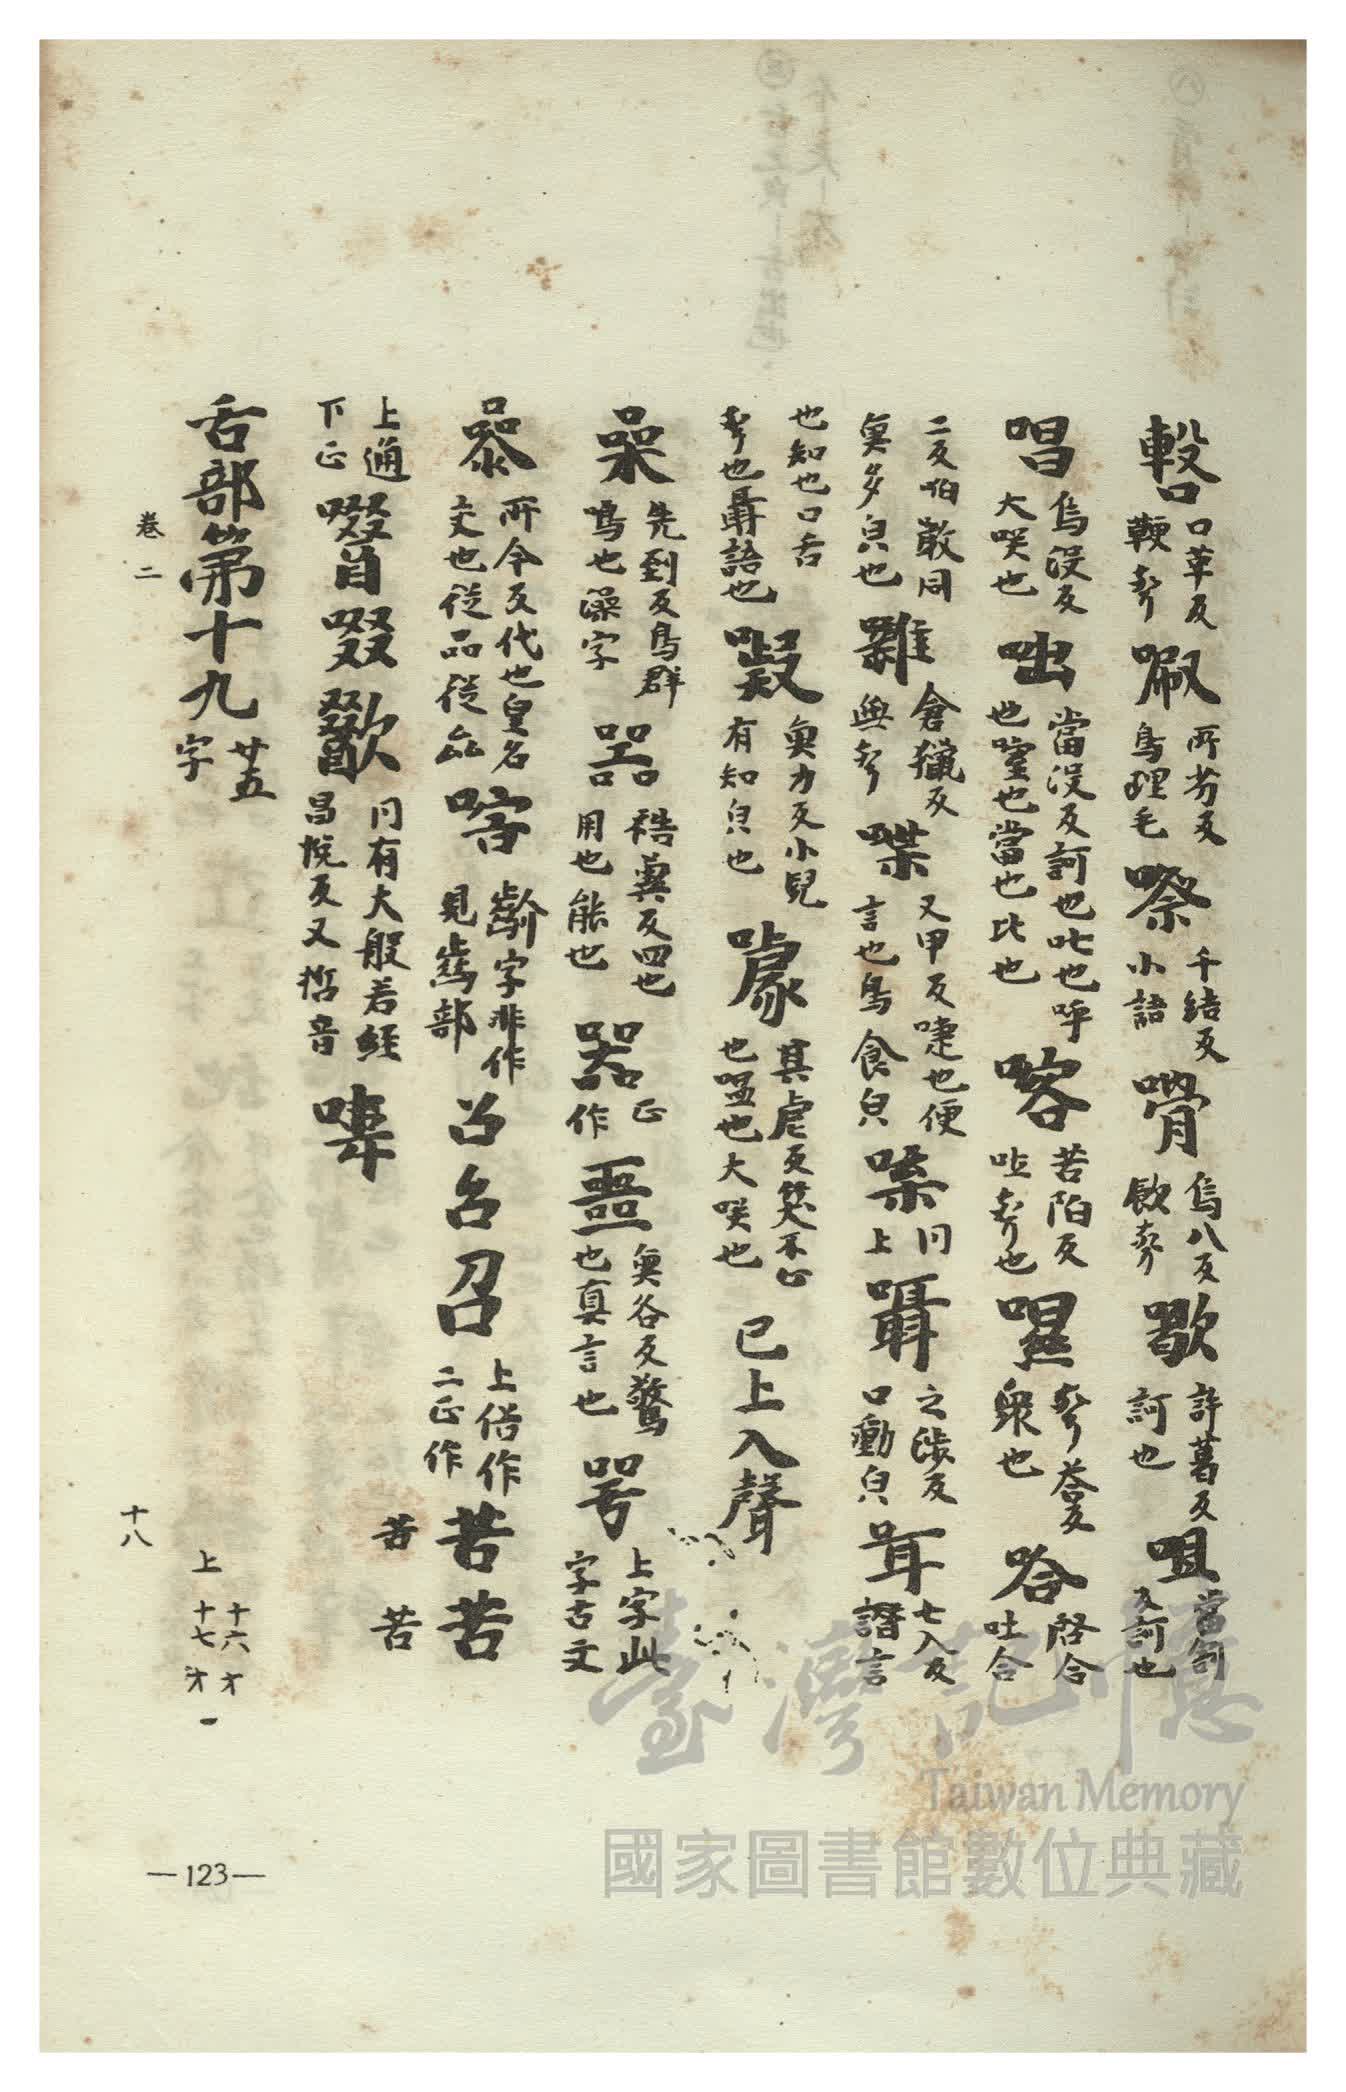 口革反鞕聲 㕞 所芳反鳥理毛 嚓 千結反小語 嗗 烏八反飲聲 許葛反訶也 咀 當割反訶也
唱 烏没反大咲也 咄 當没反訶也叱也呼也嚁也當也比也 喀 苦陌反吐聲也 㗲 聲荅反衆也 哈 啓合吐合
二反㕷敢同臭多皃也 囃 倉獵反與聲 喋 又甲反啑也便言也鳥食皃 同上 囁 之涉反口動皃 咠 七入反譖言
也知也口舌聲也𦖞語也 㘈 魚力反小兒有知皃也 噱 其虐反笑不止也嗢也大咲也 已上入聲
喿 先到反鳥群鳴也澡字 器 袪冀反四也用也能也 噐 正作 噩 魚各反驚也真言也 咢 上字此字古文
所今反代也皇名交也從品從 㗇 齡字非作見齒部 㕣 台 召 上俗作二正作 苦 苦
上通下正 啜 歠 同有大般若經昌悅反又哲音 嗶
苦 苦
舌部第十九 廿五字
卷二
十八
上 十六オ 十七オ 一
—123—
臺灣記憶
Taiwan Memory
國家圖書館數位典藏